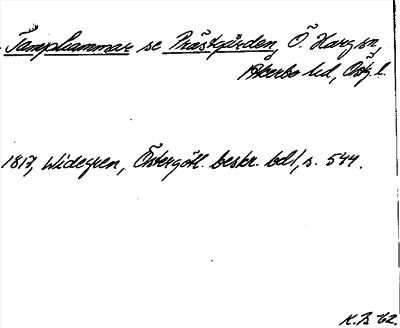 Tamphammar se Prästgården, Ö. Harg sn,
Åkerbo hd, Östg. l.
1817, Widegren, Östergötl. beskr. bd 1, s. 544.
K. B -62.